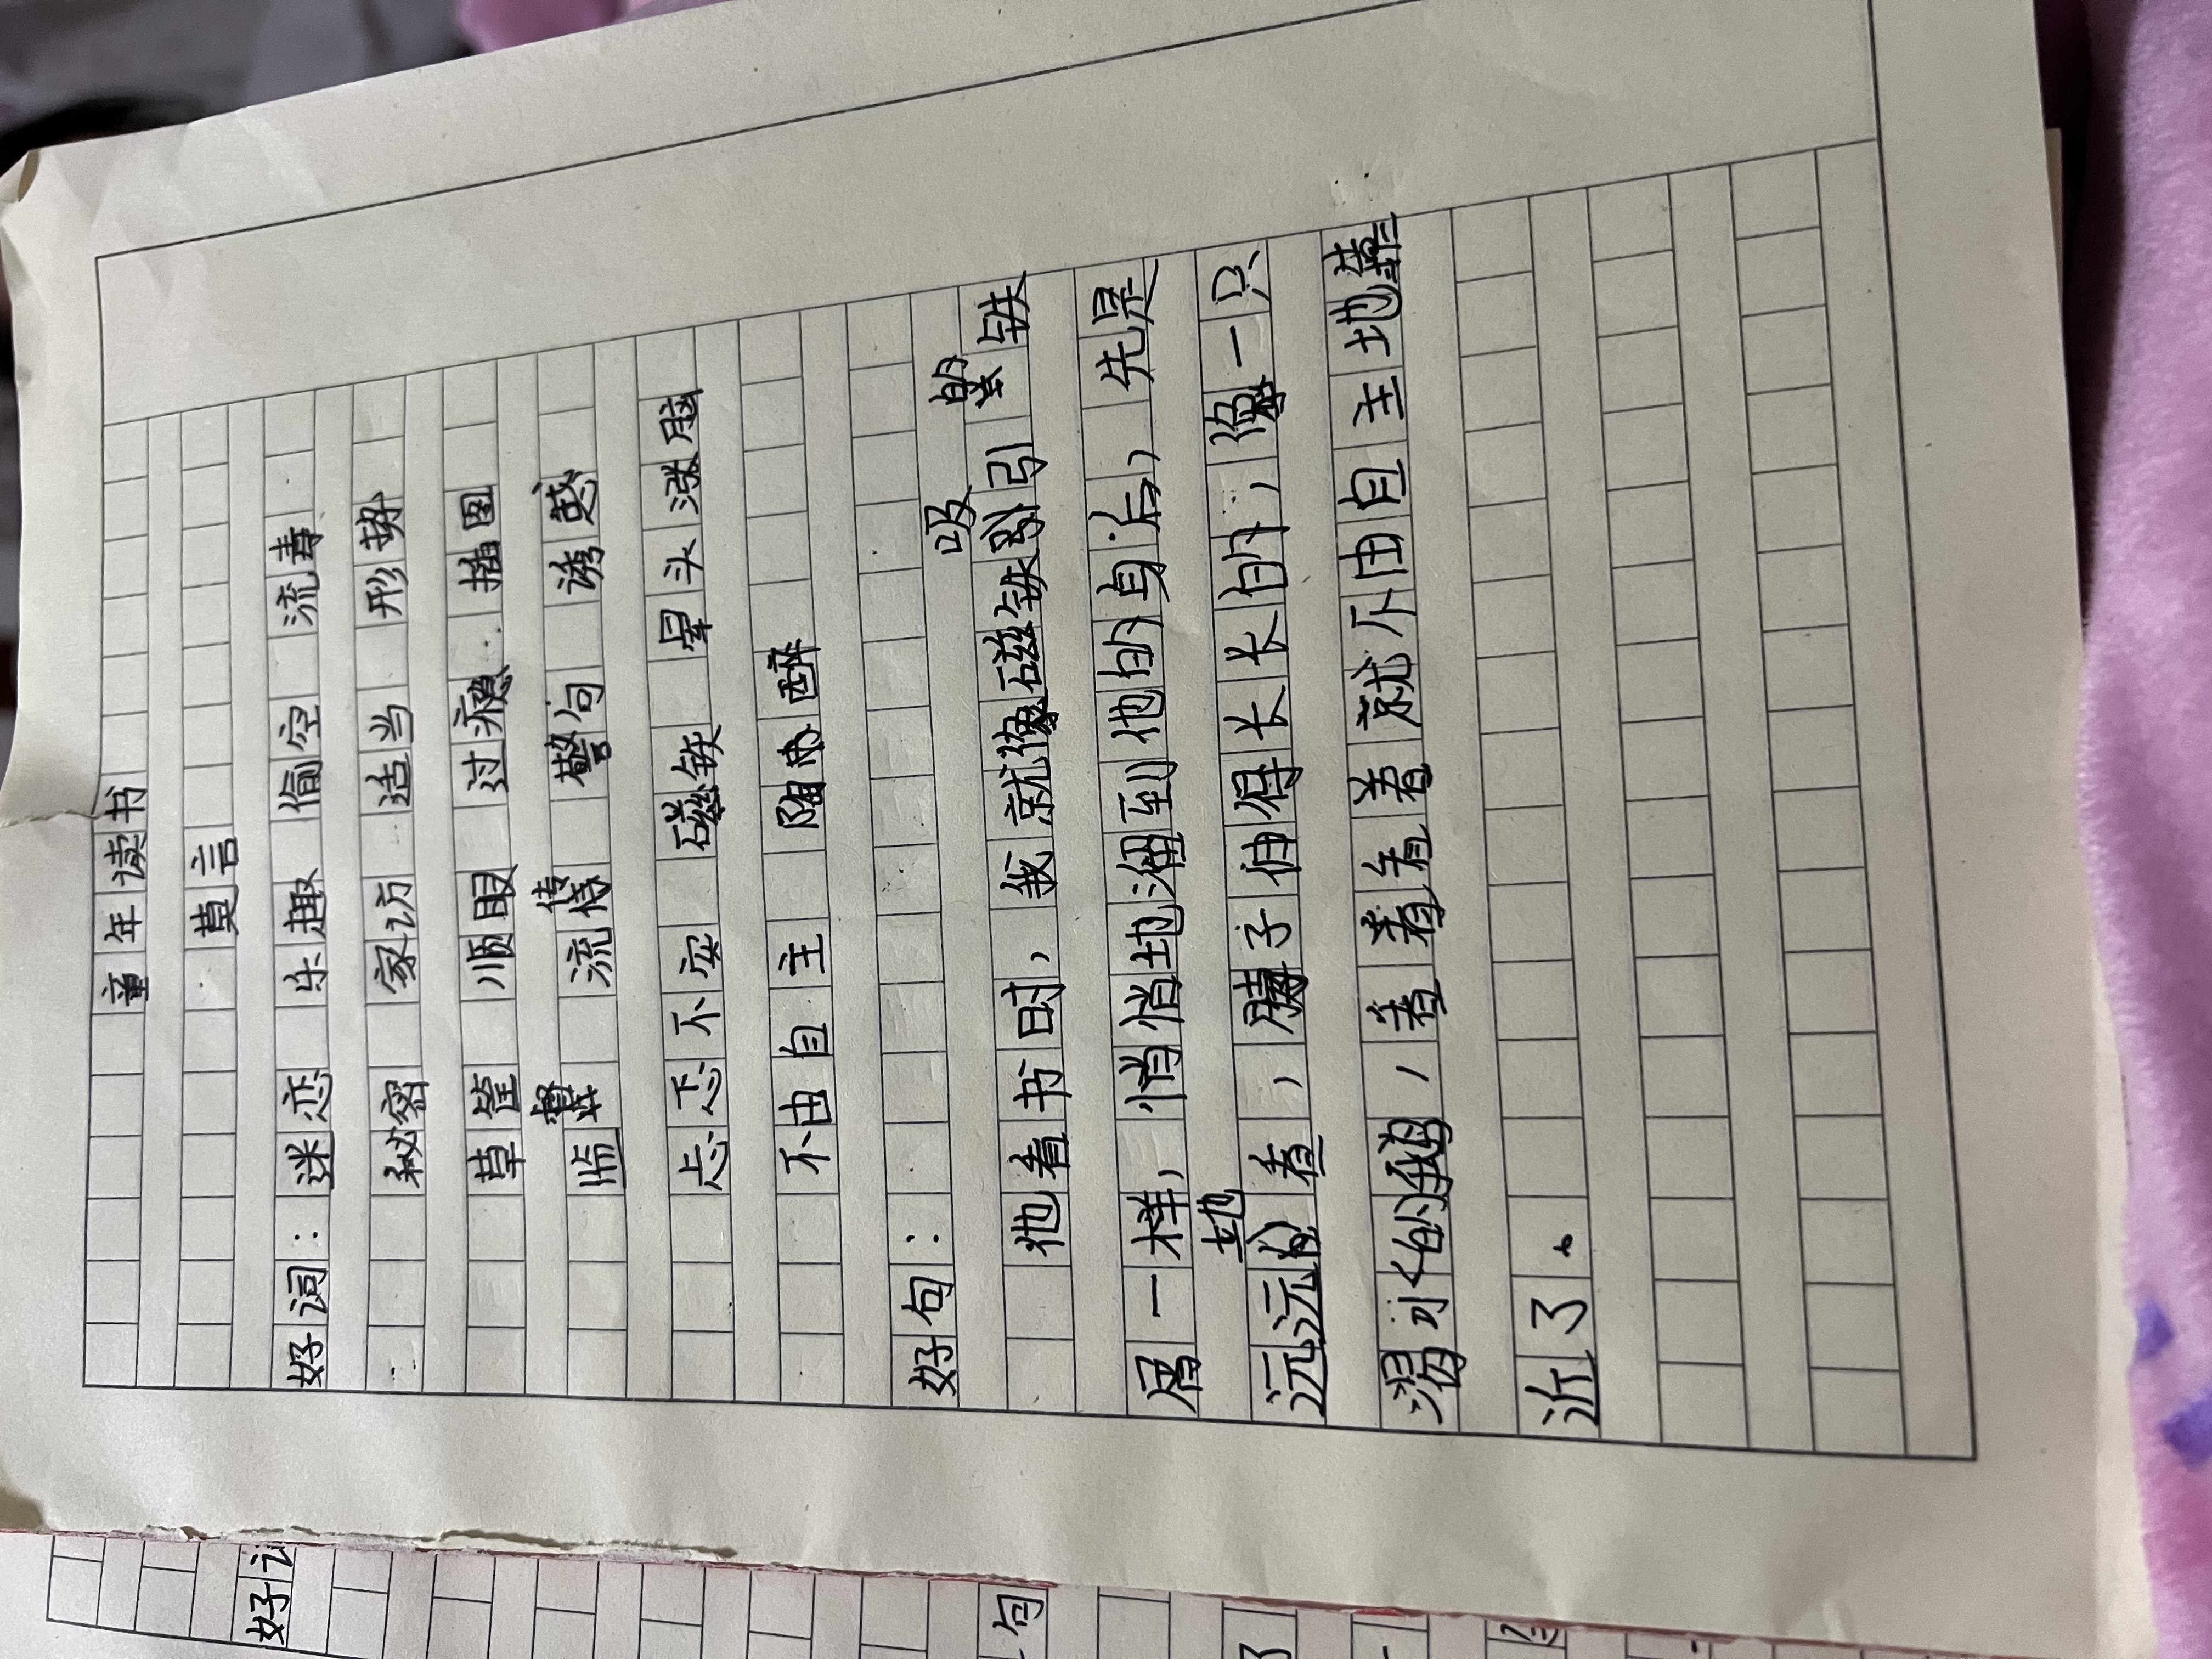 童年读书
莫言
好词：迷恋 乐趣 偷空 流毒
秘密 家访 适当 形势
草筐 顺眼 过瘾 插图
监督 流传 警句 诱惑
忐忑不安 磁铁 晕头涨脑
不由自主 陶醉
好句：
他看书时，我就像被磁铁吸引的铁
屑一样，悄悄地溜到他的身后，先是
远远地看，脖子伸得长长的，像一只
喝水的鹅，看着看着就不由自主地靠
近了。
好词
句